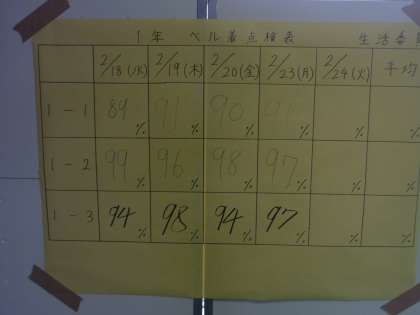 1年 ベル着点検表 生活委
2/18(水) 2/19(木) 2/20(金) 2/23(月) 2/24(火) 平均
1-1 89% 91% 90% % % %
1-2 99% 96% 98% 97% % %
1-3 94% 98% 94% 97% % %